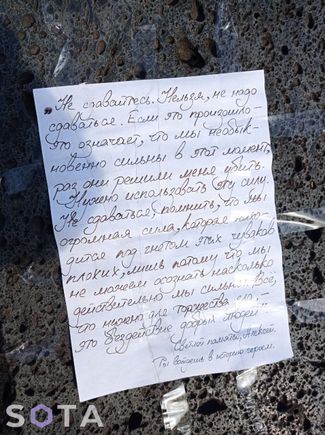 „Не сдавайтесь. Нельзя, не надо
сдаваться. Если это произошло -
это означает, что мы необык-
новенно сильны в этот момент,
раз они решили меня убить.
Нужно использовать эту силу:
Не сдаваться, помнить, что мы
огромная сила, которая нахо-
дится под гнетом этих чуваков
плохих, лишь потому что мы
не можем осознать насколько
действительно мы сильны. Всё,
что нужно для торжества зла -
это бездействие добрых людей"
Светлой памяти, Алексей.
Ты войдешь в историю героем.
SOTA